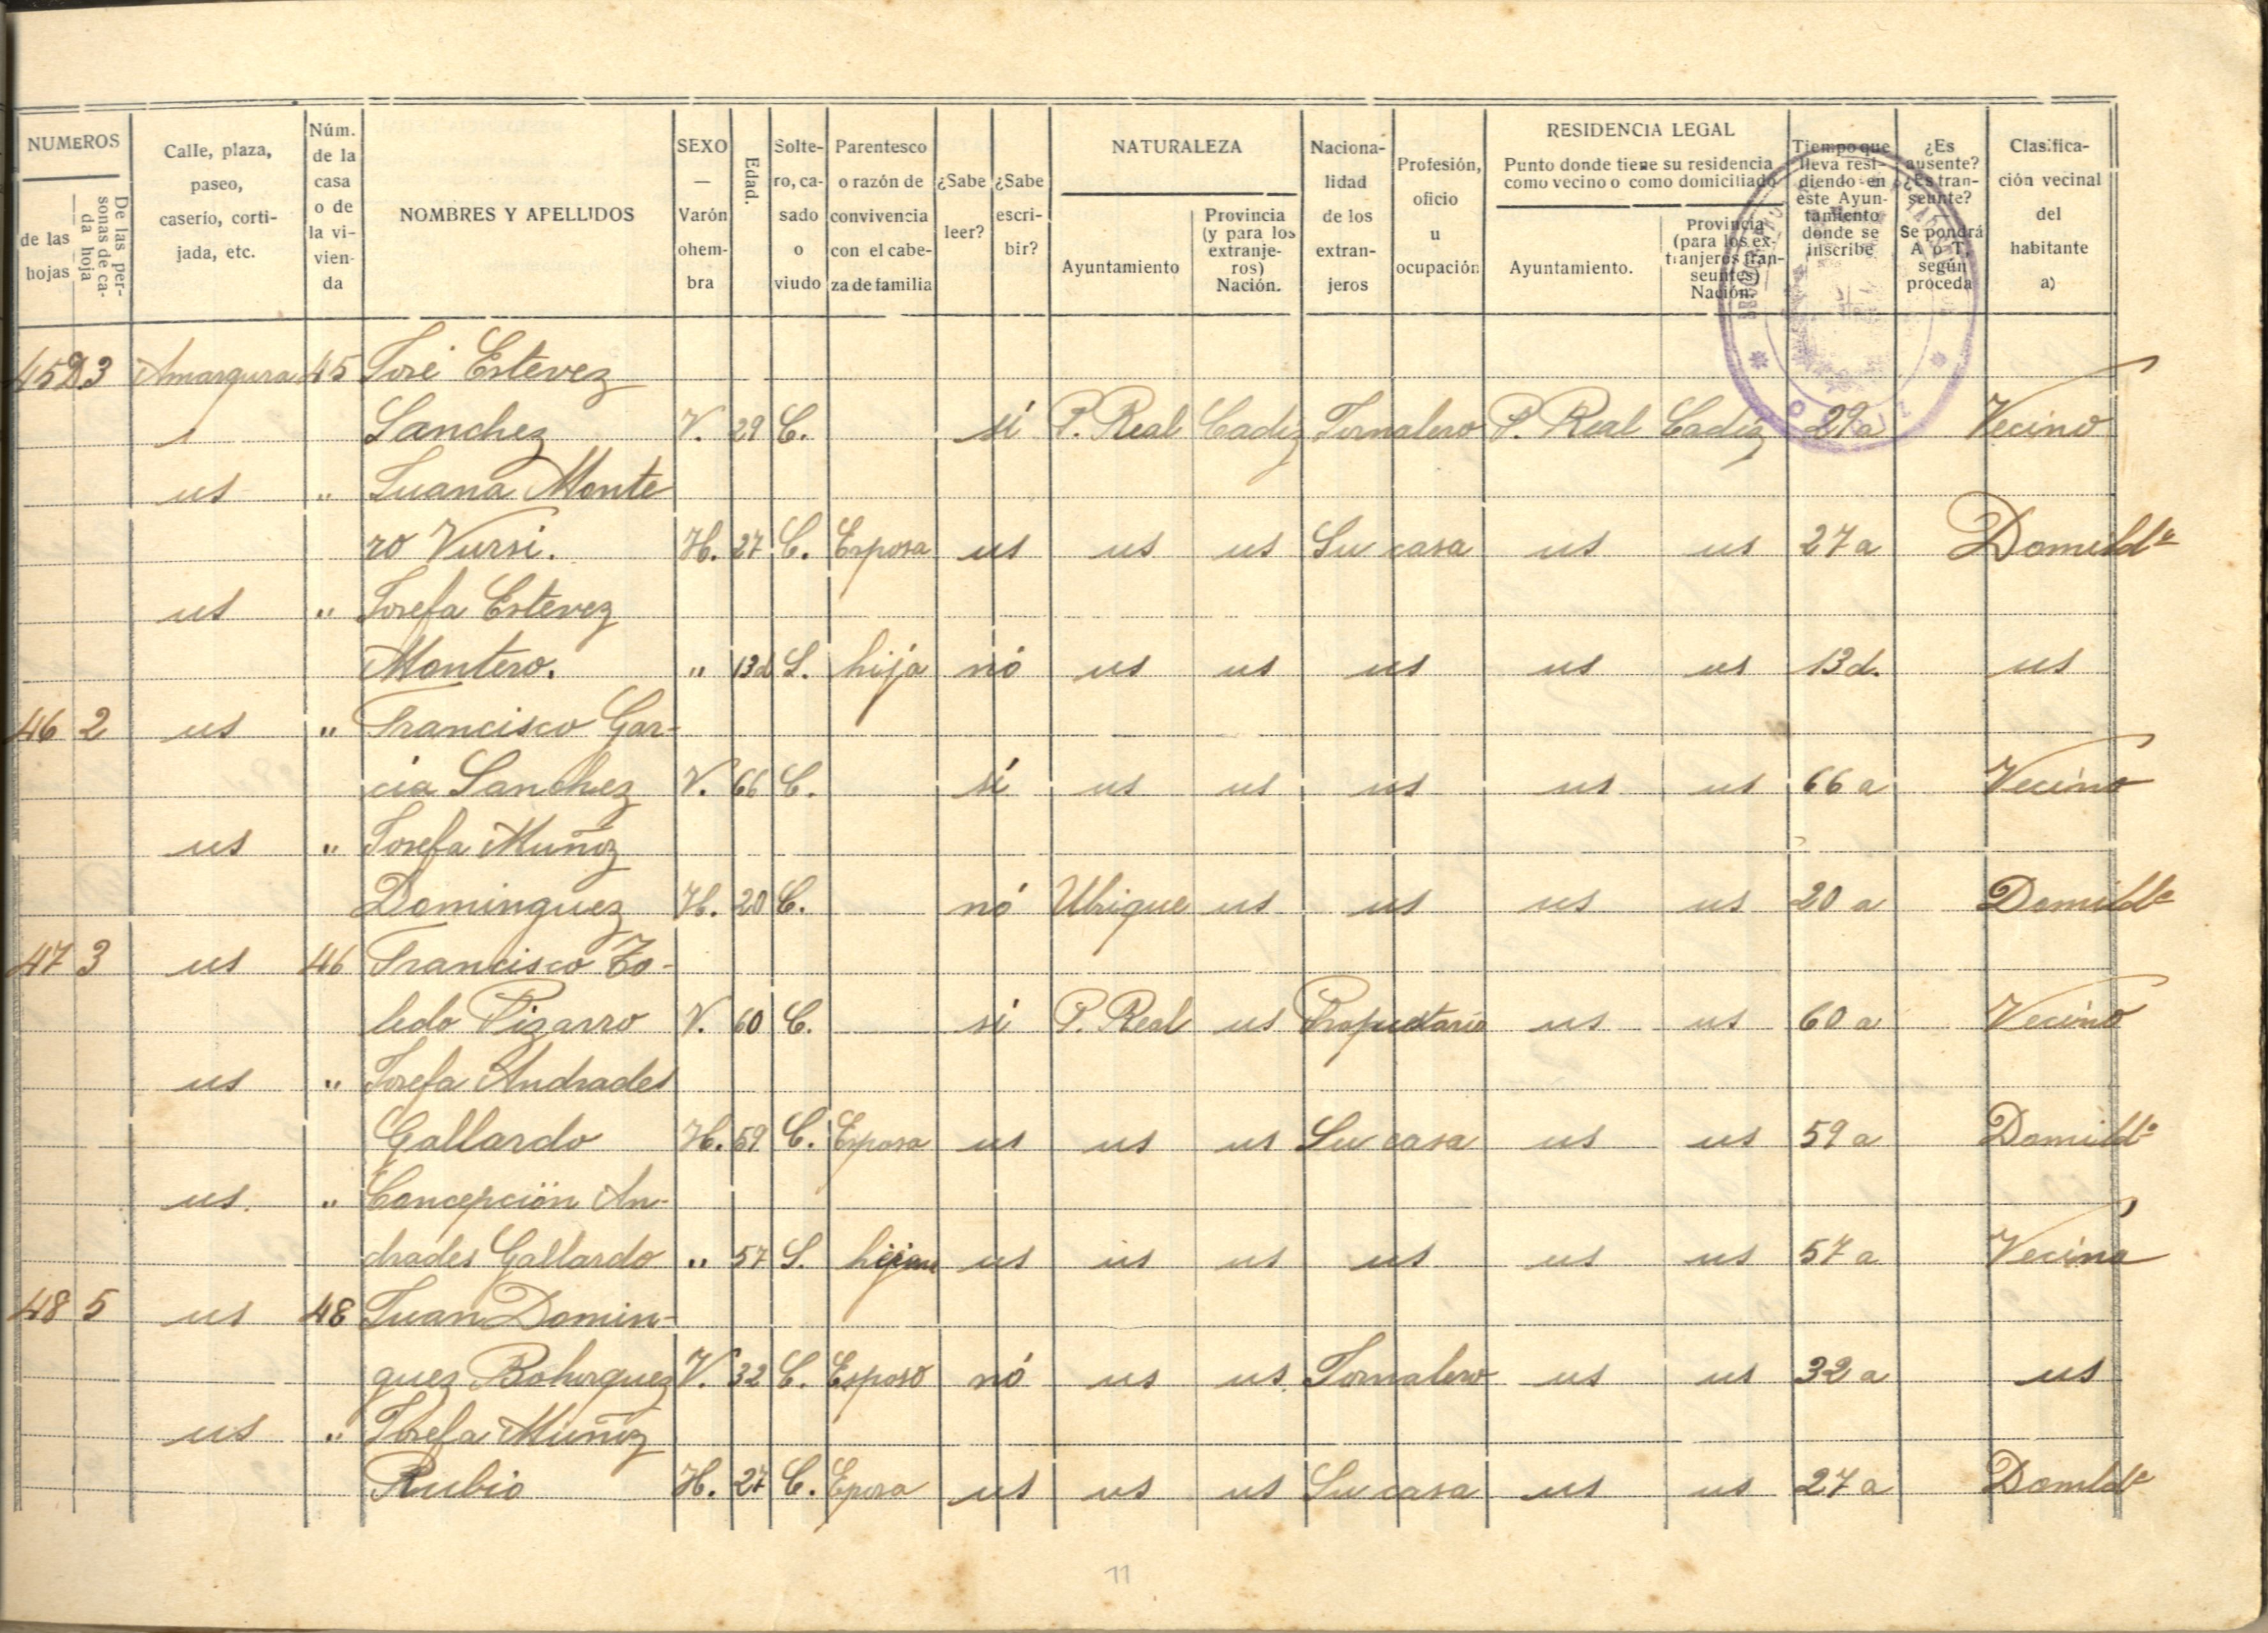 NUMEROS
de las hojas
De las personas de cada hoja
Calle, plaza, paseo, caserío, cortijada, etc.
Núm. de la casa o de la vivienda
NOMBRES Y APELLIDOS
SEXO — Varón o hembra
Edad.
Soltero, casado o viudo
Parentesco o razón de convivencia con el cabeza de familia
¿Sabe leer?
¿Sabe escribir?
NATURALEZA
Ayuntamiento
Provincia (y para los extranjeros) Nación.
Nacionalidad de los extranjeros
Profesión, oficio u ocupación
RESIDENCIA LEGAL
Punto donde tiene su residencia como vecino o como domiciliado
Ayuntamiento.
Provincia (para los extranjeros transeuntes) Nación.
Tiempo que lleva residiendo en este Ayuntamiento donde se inscribe
¿Es ausente? ¿Es transeunte? Se pondrá A o T, según proceda
Clasificación vecinal del habitante a)
45 3 Amargura 45 José Estevez
Sanchez V. 29 C. si P. Real Cadiz Jornalero P. Real Cadiz 29 a Vecino
us " Juana Monte
ro Vursi. H. 27 C. Esposa us us us Su casa us us 27 a Domildª
us " Josefa Estevez
Montero. " 13d S. hija nó us us us us us 13 d. us
46 2 us " Francisco Gar-
cia Sanchez V. 66 C. si us us us us us 66 a Vecino
us " Josefa Muñoz
Dominguez H. 20 C. nó Ubrique us us us us 20 a Domildª
47 3 us 46 Francisco To-
ledo Pizarro V. 60 C. si P. Real us Propietario us us 60 a Vecino
us " Josefa Andrades
Gallardo H. 59 C. Esposa us us us Su casa us us 59 a Domildª
us. " Concepción An-
drades Gallardo " 57 S. us us us us us us 57 a Vecina
48 5 us 48 Juan Domin-
guez Bohorquez V. 32 C. Esposo nó us us Jornalero us us 32 a us
us " Josefa Muñoz
Rubio H. 27 C. Eposa us us us Su casa us us 27 a Domldª
11